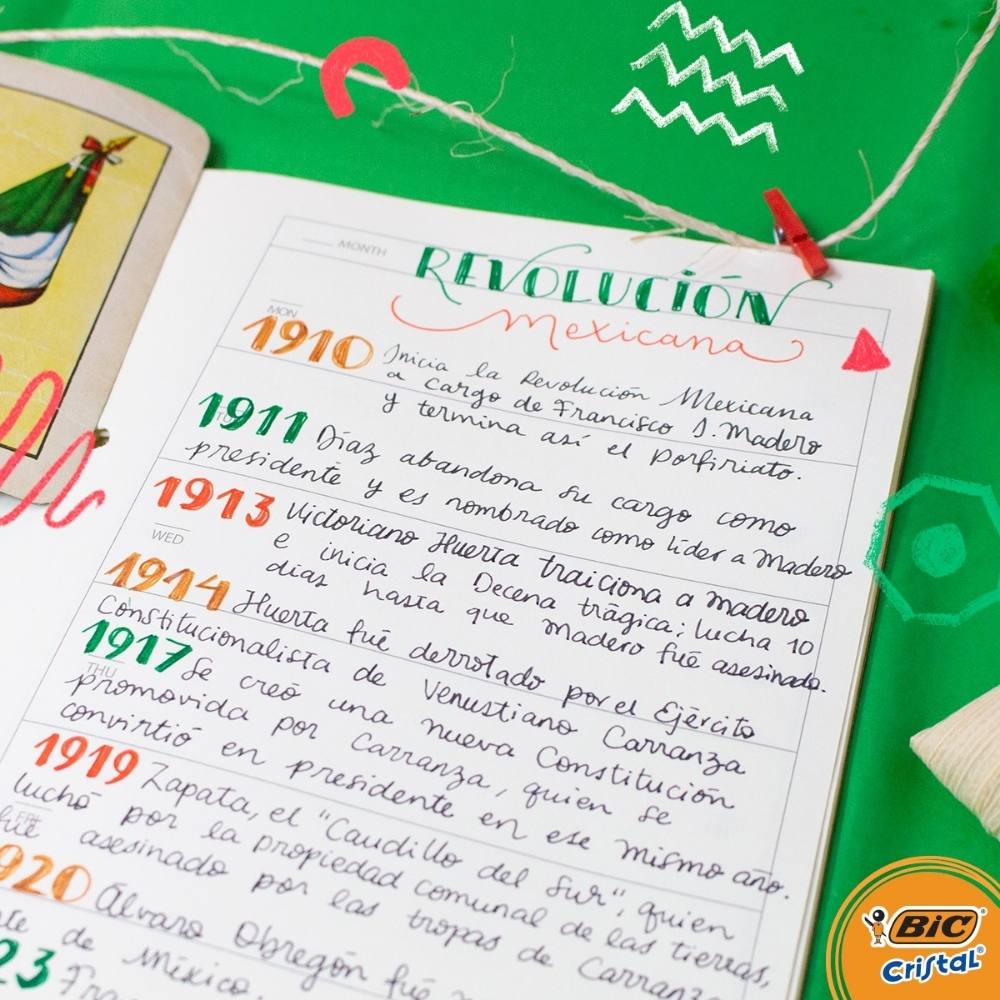 MONTH
REVOLUCIÓN
Mexicana
MON
1910 Inicia la Revolución Mexicana
a cargo de Francisco I. Madero
y termina así el porfiriato.
1911 Díaz abandona su cargo como
presidente y es nombrado como líder a Madero
1913 Victoriano Huerta traiciona a Madero
e inicia la Decena trágica; lucha 10
WED
días hasta que Madero fué asesinado.
1914 Huerta fué derrotado por el Ejército
Constitucionalista de Venustiano Carranza
1917 Se creó una nueva Constitución
THU
promovida por Carranza, quien se
convirtió en presidente en ese mismo año.
1919 Zapata, el "Caudillo del Sur", quien
luchó por la propiedad comunal de las tierras,
FRI
fué asesinado por las tropas de Carranza
920 Álvaro Obregón fué
de México.
23
BIC
Cristal